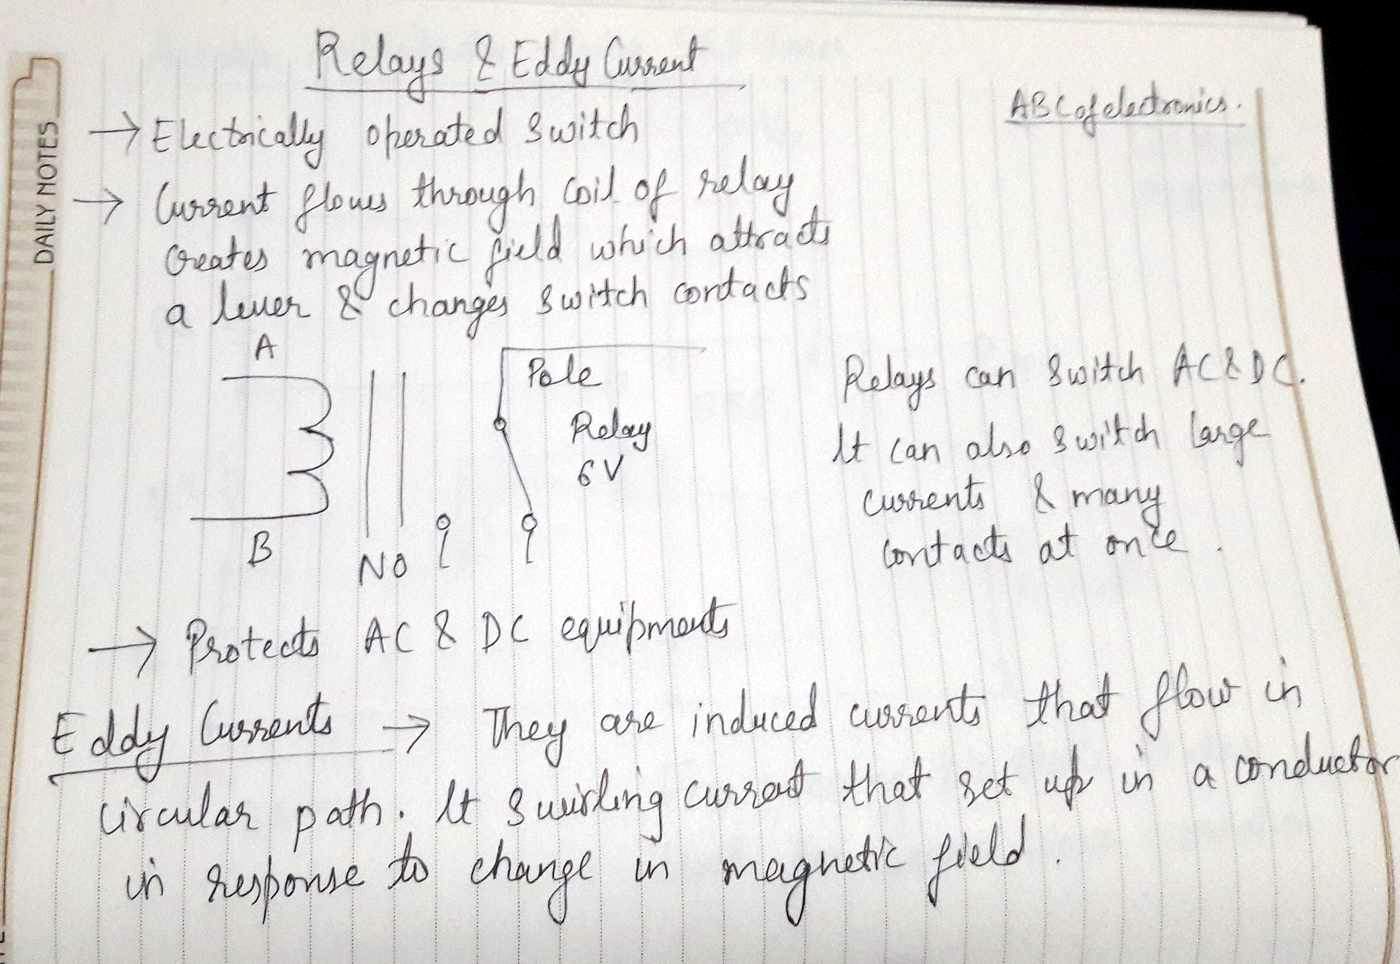 Relays & Eddy Current
ABC of electronics.
DAILY NOTES
→ Electrically operated switch
→ Current flows through coil of relay
creates magnetic field which attracts
a lever & changes switch contacts
A
B
NO
Pole
Relay
6V
Relays can switch AC & DC.
It can also switch large
currents & many
contacts at once.
→ Protects AC & DC equipments
Eddy Currents → They are induced currents that flow in
circular path. It swirling current that set up in a conductor
in response to change in magnetic field.